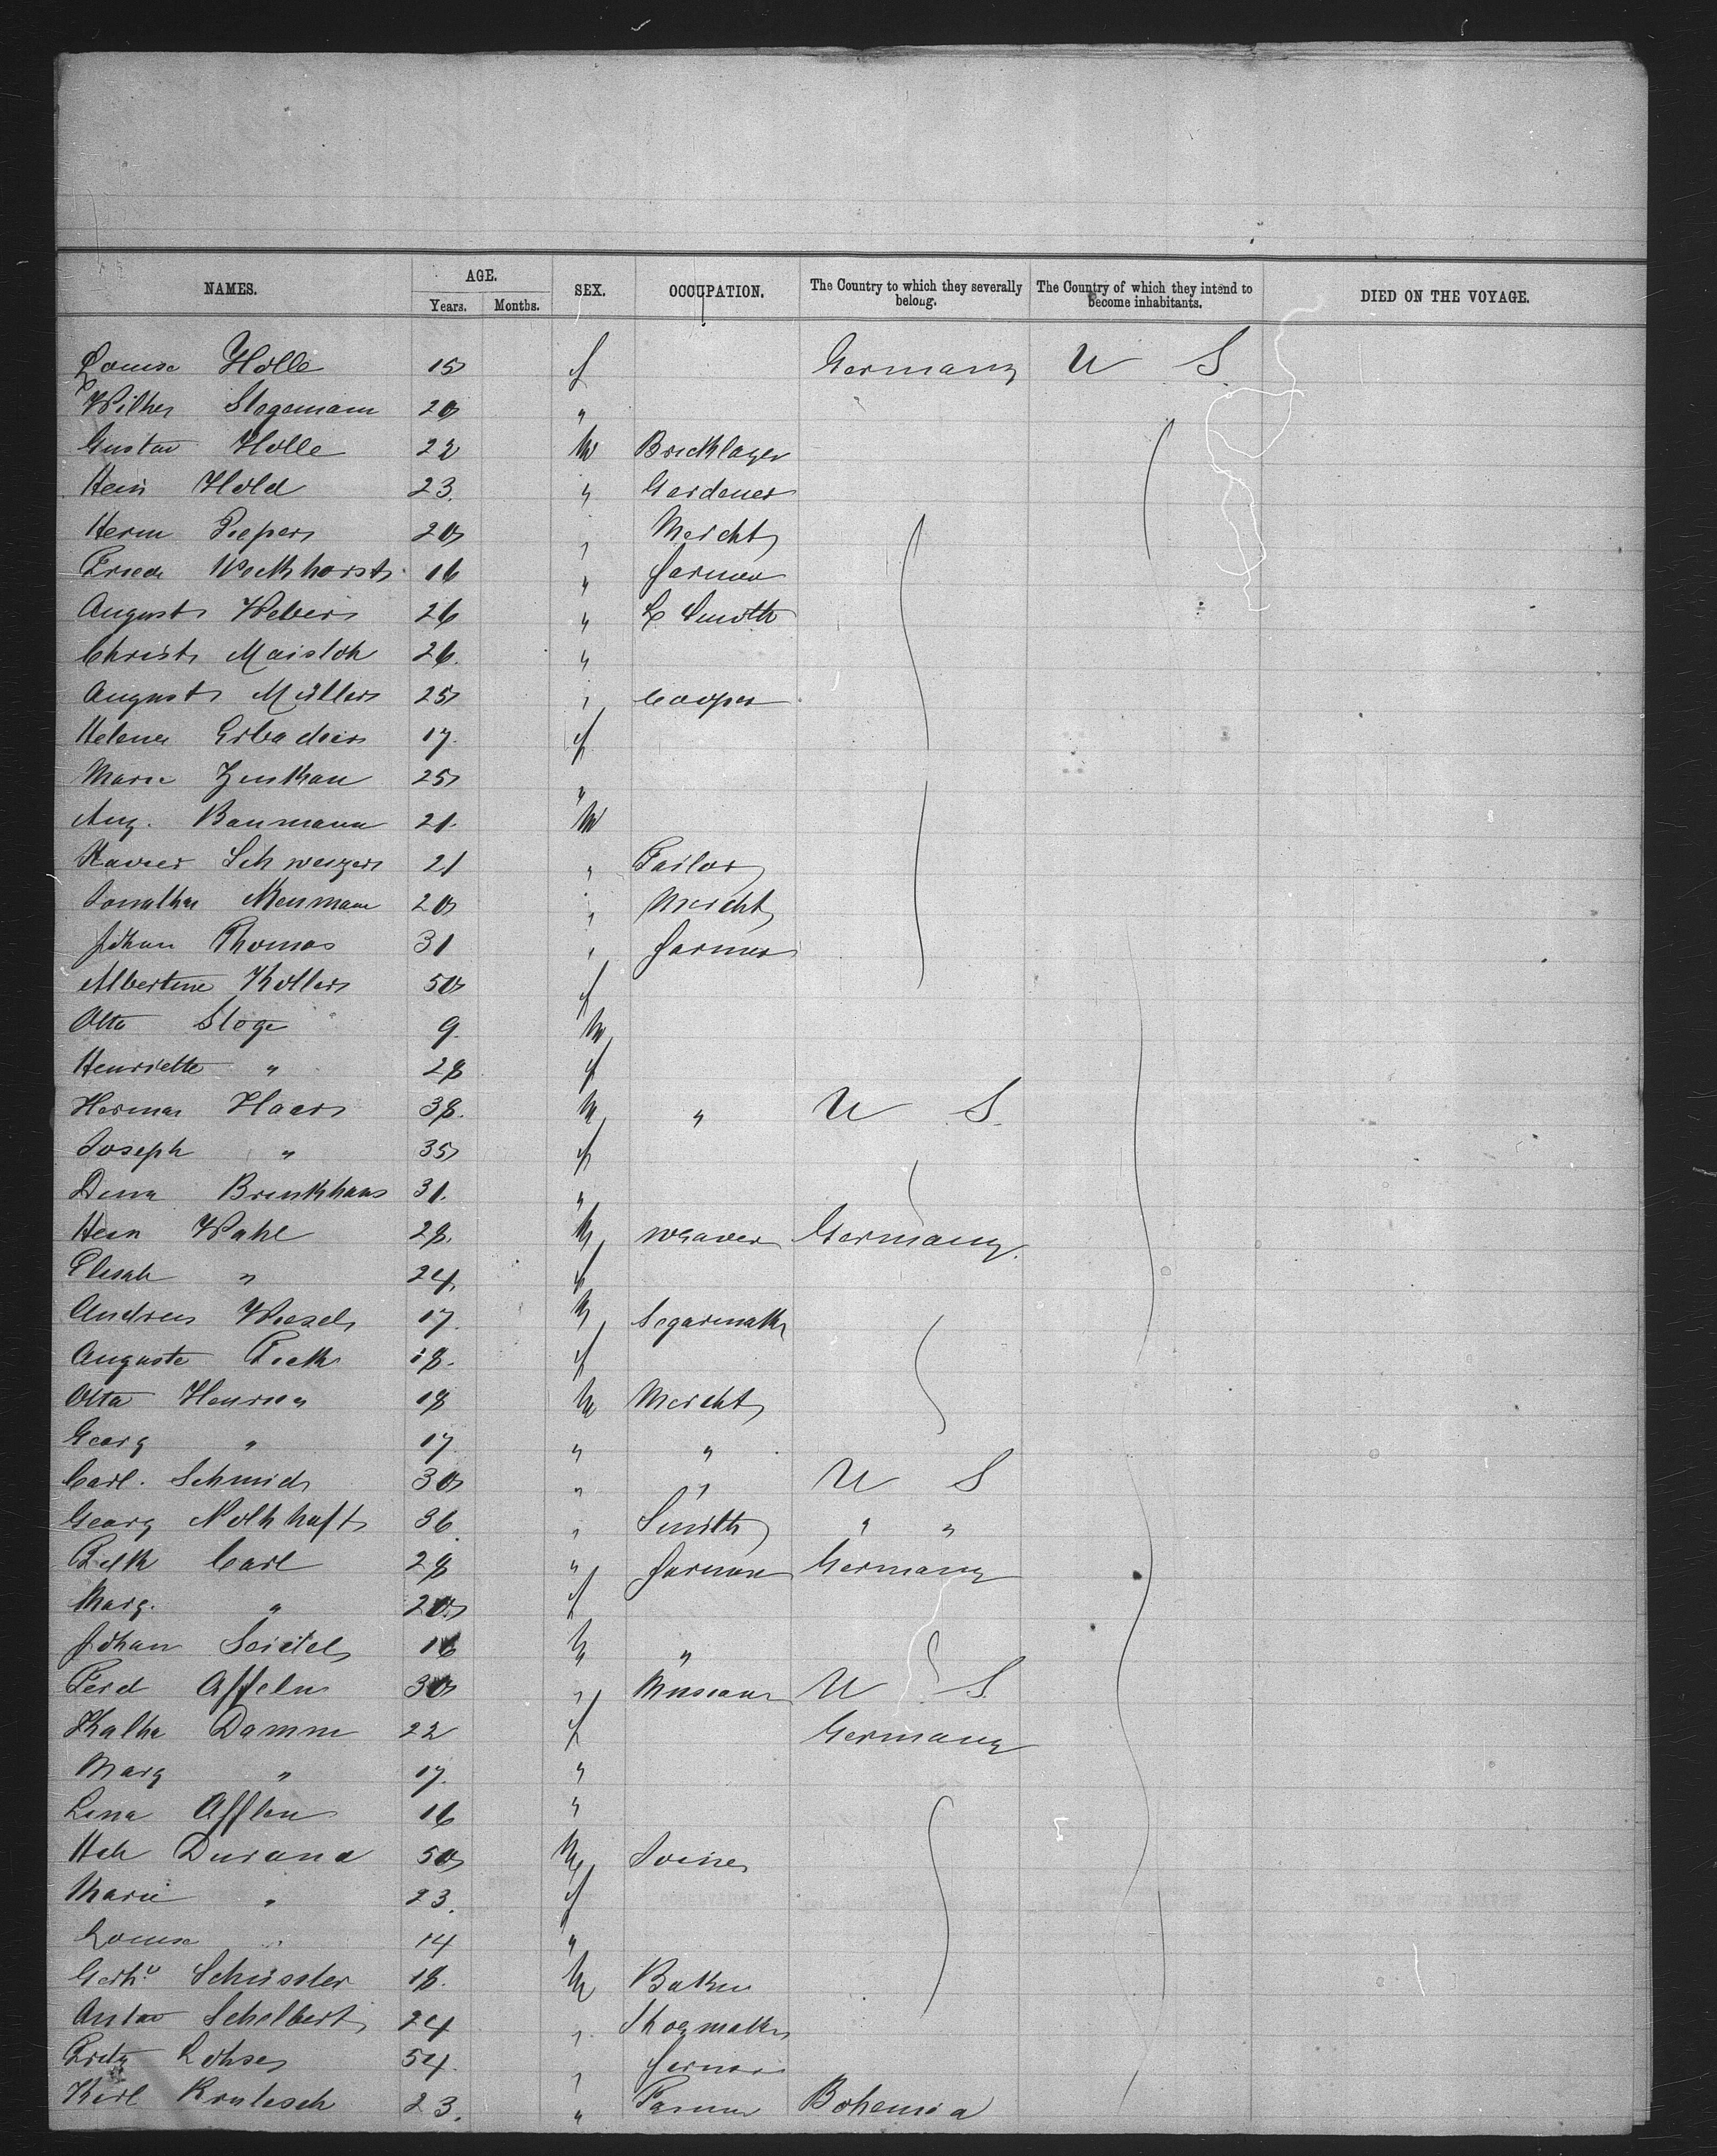 NAMES. AGE. SEX. OCCUPATION. The Country to which they severally belong. The Country of which they intend to become inhabitants. DIED ON THE VOYAGE.
Years. Months.
Louise Holle 15 f Germany U S
Stegemann 20 "
Gustav Holle 22 M Bricklayer
Hein Hold 23. " Gardener
Herm Pieper 20 " Mercht
Friedr Weckhorst 16 " farmer
August Weber 26 " Smith
Christ 26. "
August Müller 25 " Cooper
Helene 17. f
Marie 25 "
Aug. Baumann 21. M
Xavier Schweizer 21 " Tailor
Jonathan Neumann 20 " Mercht
Johann Thomas 31 " farmer
Albertine Koller 50 f
Otto Stoge 9. M
Henriette " 28 f
Herman Haar 38. M " U S.
Joseph " 35 f
Dina Brinkhaus 31. "
Hein Wahl 28. M weaver Germany.
" 24. f
Andreas Wiesel 17. M Segarmakr
Auguste Fick 18. f
Otto 18 M Mercht
Georg " 17. " "
Carl. Schmid 30 " " U S
Georg Nothhaft 36. " Smith " "
Carl 28 " farmer Germany
Marg. " 20 f
Johan Seidel 16 M "
Ferd Affeln 30 " U S.
Damm 22 f Germany
Marg " 17. "
Lina Afflen 16 "
Durand 50 M Joiner
Marie " 23. f
Louise " 14 "
Gerhd Schüssler 18. M Baker
Anton Schelbert 24 " Shoemakr
Fritz Lohse 54. " farmer
Karl 23. " Farmer Bohemia